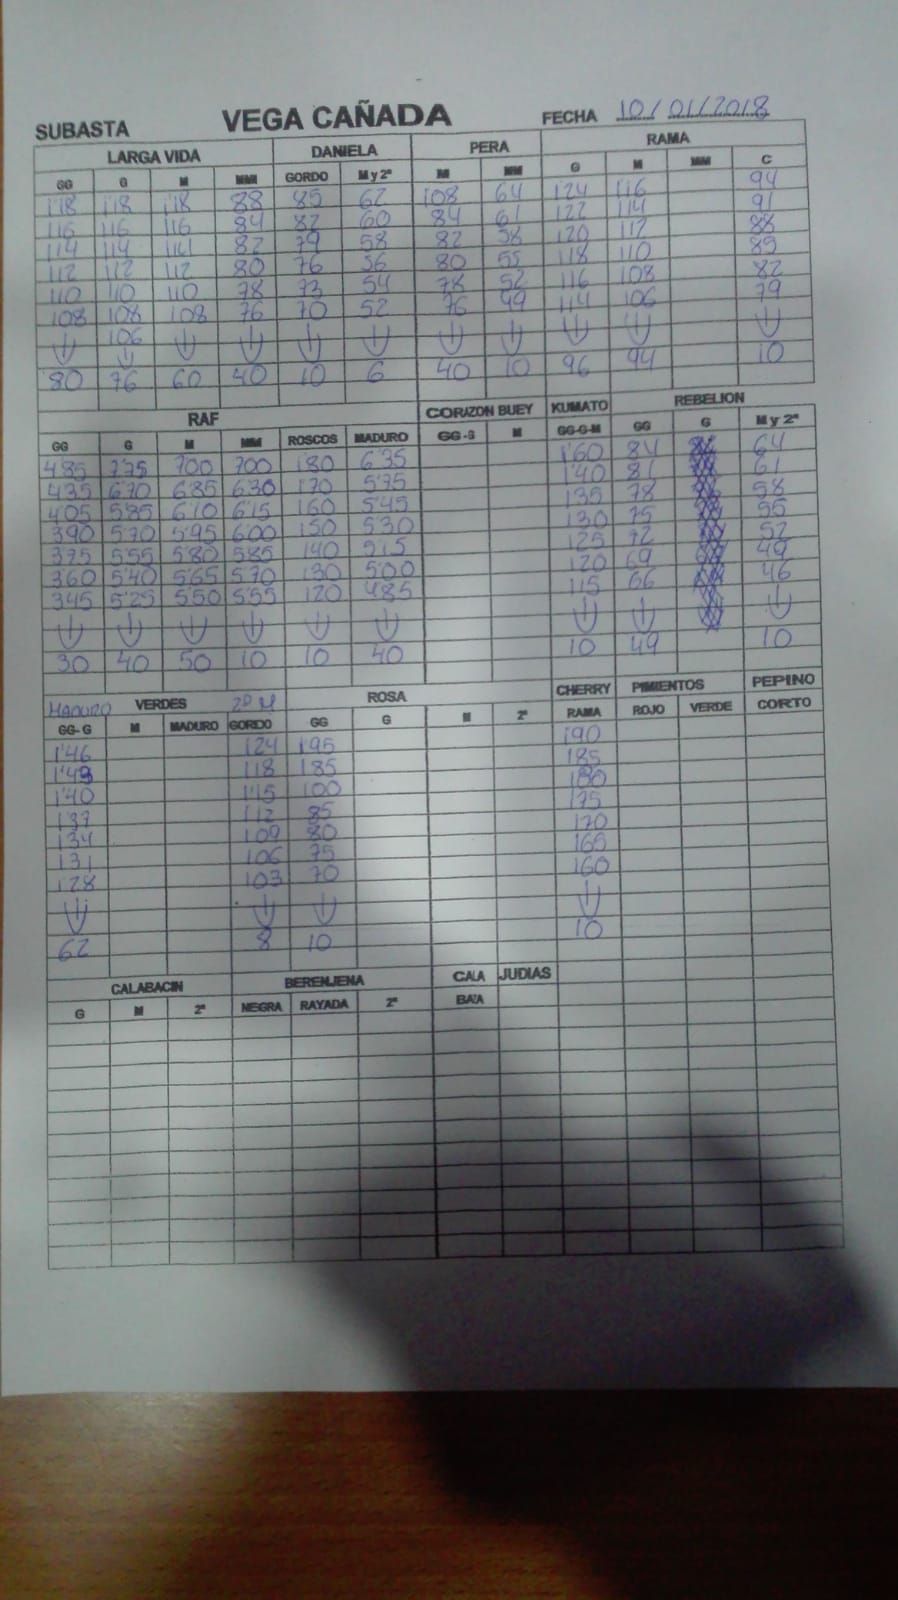 SUBASTA VEGA CAÑADA FECHA 10/01/2018
LARGA VIDA DANIELA PERA RAMA
GG G M MM GORDO M y 2ª M MM G M MM C
1'18 1'18 1'18 88 85 62 108 64 124 116 94
116 116 116 84 82 60 84 61 122 114 91
114 114 114 82 79 58 82 58 120 112 88
112 112 112 80 76 56 80 55 118 110 85
110 110 110 78 73 54 78 52 116 108 82
108 108 108 76 70 52 76 49 114 106 79
106
80 76 60 40 10 6 40 10 96 94 10
RAF CORAZON BUEY KUMATO REBELION
GG G M MM ROSCOS MADURO GG-G M GG-G-M GG G M y 2ª
485 775 700 700 180 6'35 1'60 84 64
435 670 685 630 170 575 1'40 81 61
405 585 610 615 160 5'45 135 78 58
390 570 595 600 150 530 130 75 55
375 555 580 585 140 515 125 72 52
360 5'40 565 570 130 500 120 69 49
345 5'25 550 555 120 485 115 66 46
30 40 50 10 10 40 10 49 10
MADURO VERDES 2ª M ROSA CHERRY PIMIENTOS PEPINO
GG-G M MADURO GORDO GG G M 2ª RAMA ROJO VERDE CORTO
1'46 124 195 190
1'43 118 185 185
1'40 1'15 100 180
137 112 85 175
134 109 80 170
131 106 75 165
128 103 70 160
62 8 10 10
CALABACIN BERENJENA CALA JUDIAS
G M 2ª NEGRA RAYADA 2ª BAZA